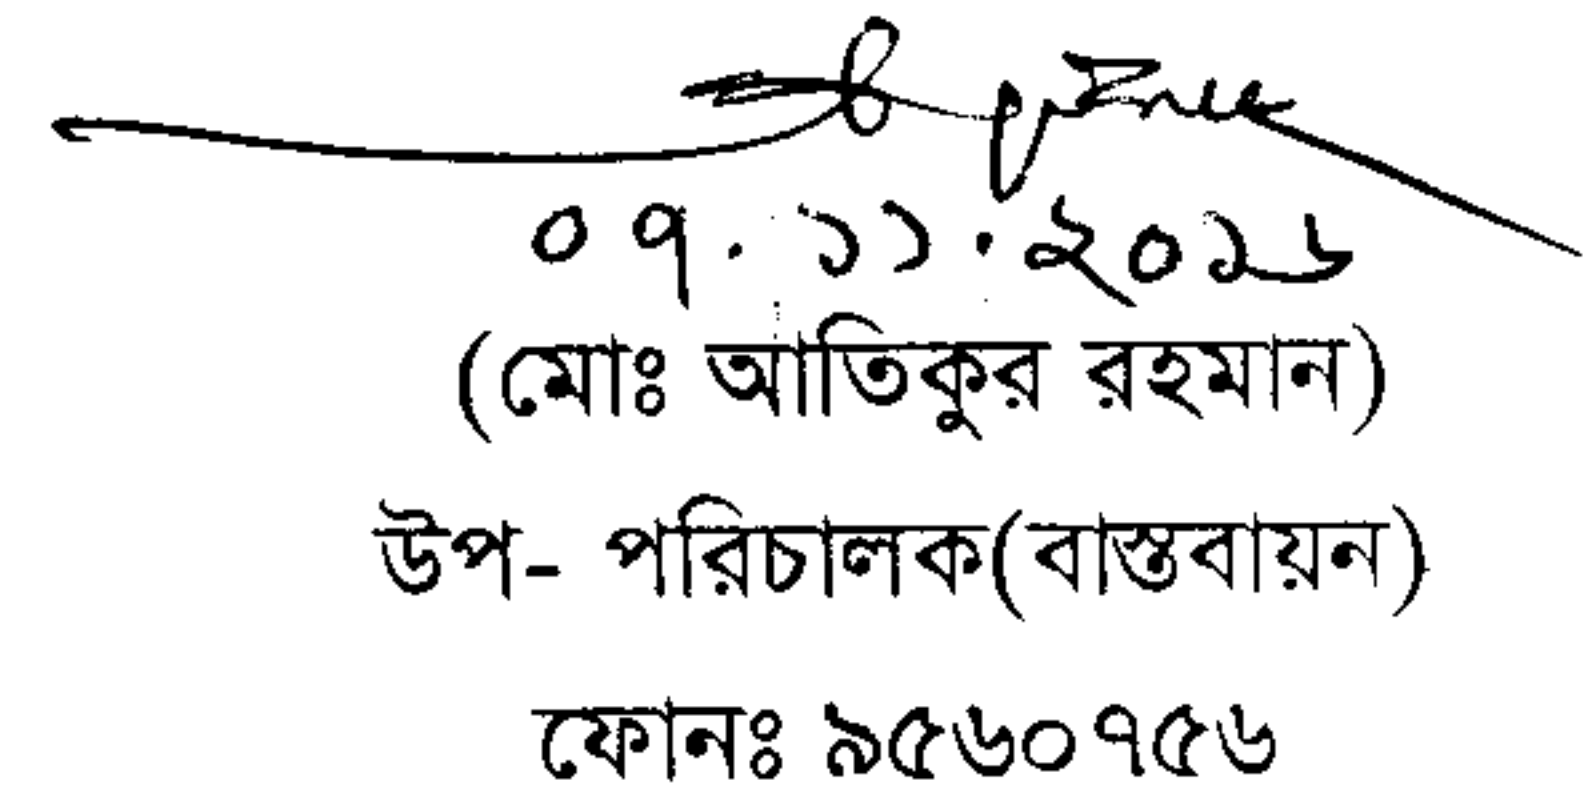 ০৭.১১.২০১৬
(মোঃ আতিকুর রহমান)
উপ- পরিচালক(বাস্তবায়ন)
ফোনঃ ৯৫৬০৭৫৬